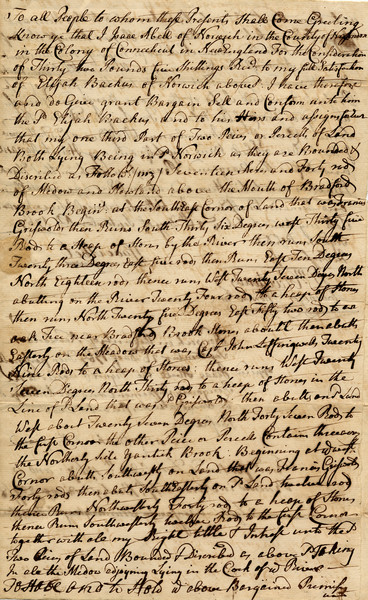 To all People to whom these Presents Shall Come Greeting
Know ye that I Isaac of Norwich in the County of
in the Colony of Connecticut in New England For the Consideration
of Thirty two Pounds five Shillings Recd to my full Satisfaction
of Elijah Backus of Norwich aboves I have therefore
and do Give grant Bargain Sell and Confirm unto him
the Sd Elijah Backus and to his Heirs and assigns for
that my one third Part of Two Peices or Parcels of Land
Both Lying Being in Sd Norwich as they are Bounded &
Discribed as Follows (viz) Seventeen Acres and Forty rod
of Medow and above the Mouth of Bradford
Brook Begin at the Southeast Corner of Land that was
Griswolds then Runs South Thirty Six Degrees West Thirty five
Rod to a Heap of Stons by the River then runs South
Twenty three Degrees East five rods then Runs East Ten Degrees
North Eighteen rods thence runs West Twenty Seven Degres North
abutting on the River Twenty Four rods to a heap of Stones
then runs North Twenty five Degrees East Fifty two rod to an
oak Tree near Bradford Brook Stones about it then abuts
Easterly on the Meadow that was Capt John Leffingwells Twenty
Rods to a heap of Stones thence runs West Twenty
Seven Degrees North Thirty rod to a heap of Stones in the
Line of Sd Land that was Sd Griswolds then abutts Sd Land
West about Twenty Seven Degrees North Forty Seven Rods to
the first Corner the other Peice or Parcel Contain three acres
the Northerly Side Yantick Brook Beginning at
Corner abutts Southeasterly on Land that was Francis Griswolds
Forty rods then abuts Southeasterly on Sd Land twelve rod
thence Runs Northwesterly Forty rods to a heap of Stones
thence Runs Southwesterly twelve Rod to the first Corner
together with all my Right title & Intrest unto the Sd
Two Peices of Land Bounded & Discribed as above
In all the Medow adjoyning Lying in the Crook of Sd River
To Have and to Hold Sd above Bargained Premises